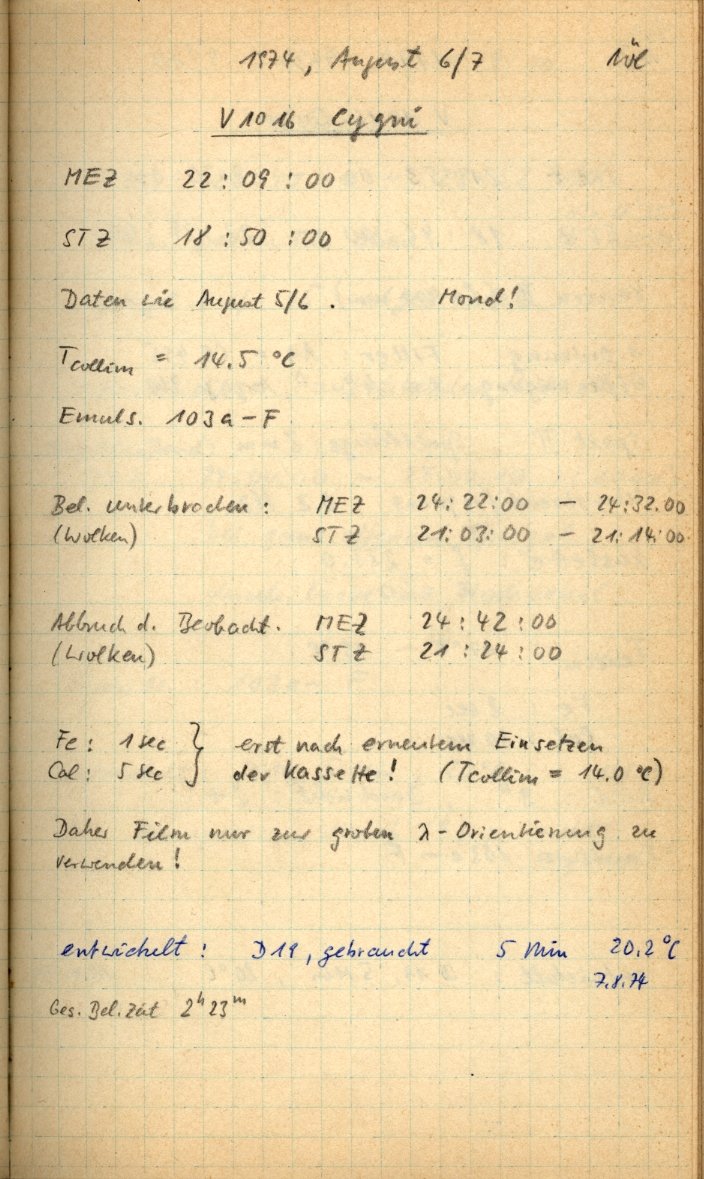 1974, August 6/7 Nöl
V1016 Cygni
MEZ 22:09:00
STZ 18:50:00
Daten wie August 5/6. Mond!
Tcollim = 14.5 °C
Emuls. 103a-F
Bel. unterbrochen: MEZ 24:22:00 – 24:32.00
(Wolken) STZ 21:03:00 – 21:14:00
Abbruch d. Beobacht. MEZ 24:42:00
(Wolken) STZ 21:24:00
Fe: 1 sec } erst nach erneutem Einsetzen
Cal: 5 sec } der Kassette! (Tcollim = 14.0 °C)
Daher Film nur zur groben λ-Orientierung zu
verwenden!
entwickelt: D19, gebraucht 5 Min 20.2°C
7.8.74
Ges. Bel. Zeit 2h 23m